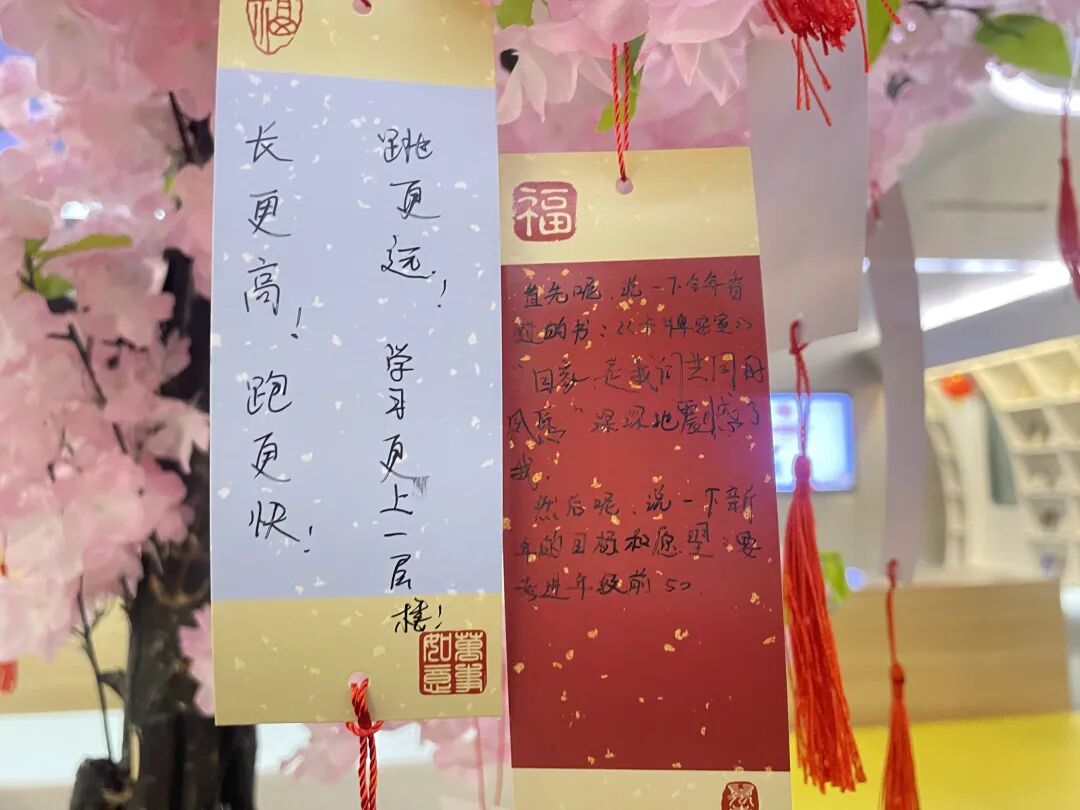 福
长更高！跑更快！
跳更远！学习更上一层楼！
萬事如意
福
首先呢，说一下今年看
过的书：《古牌密室》
"国家是我们共同的
风景"深深地震撼了
我。
然后呢，说一下新
年的目标和愿望：要
考进年级前50